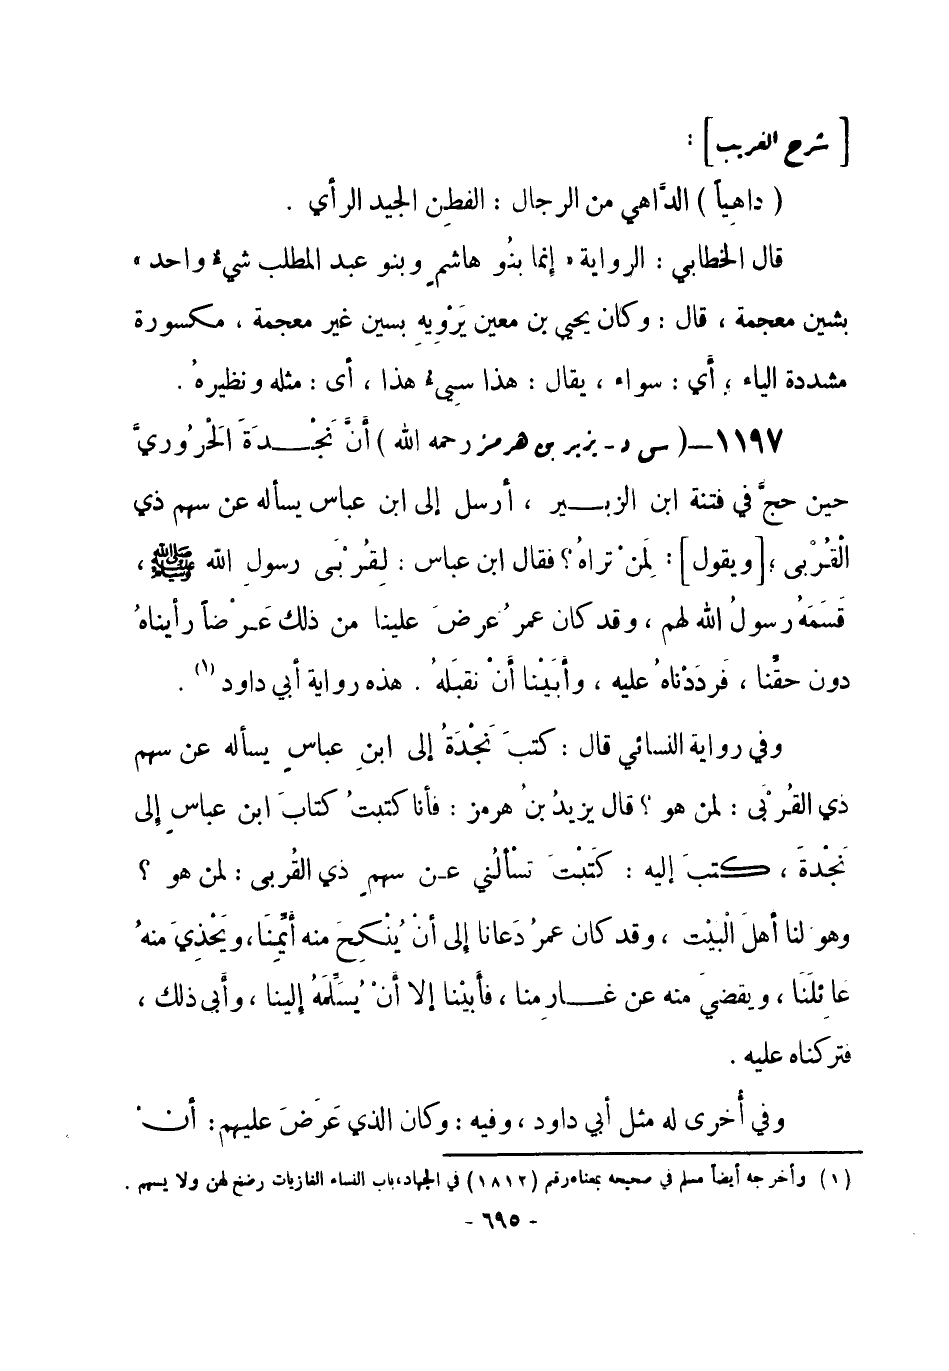 [ شرح الغريب ] :
( داهياً ) الدَّاهي من الرجال : الفطِن الجيد الرأي .
قال الخطابي : الرواية « إنما بنُو هاشمٍ وبنو عبد المطلب شيءٌ واحد »
بشين معجمة ، قال : وكان يحيى بن معين يَرْوِيهِ بسين غير معجمة ، مكسورة
مشددة الياء ؛ أَي : سواء ، يقال : هذا سِيءُ هذا ، أى : مثله ونظيرهُ .
١١٩٧ – ( س د - يزير بن هرمز رحمه الله ) أَنَّ نَجْـدَةَ الحَرُوريَّ
حين حجَّ في فتنة ابن الزبـير ، أرسل إلى ابن عباس يسأله عن سهم ذي
الْقُرْبى ؛ [ ويقول ] : لِمَنْ تراهُ ؟ فقال ابن عباس : لِقُرْبَى رسولِ الله ﷺ ،
قَسَمَهُ رسولُ الله لهم ، وقد كان عمرُ عرضَ علينا من ذلك عَرْضاً رأيناهُ
دون حقِّنا ، فَردَدْناهُ عليه ، وأَبَيْنا أَنْ نقبَلهُ . هذه رواية أبي داود (١) .
وفي رواية النسائي قال : كتبَ نَجْدَةُ إلى ابنِ عباسٍ يسأله عن سهم
ذي القُرْبَى : لمن هو ؟ قال يزيدُ بنُ هرمز : فأنا كتبتُ كتابَ ابن عباسٍ إلى
نَجْدَةَ ، كتبَ إليه : كَتَبْتَ تسْأَلُني عن سهمِ ذي القُربى : لمن هو ؟
وهو لنا أهلَ الْبيْت ، وقد كان عمرُ دَعانا إلى أنْ يُنْكِحَ منه أَيِّمَنَا ، ويَحْذِيَ منهُ
عائِلَنَا ، ويقضيَ منه عن غـارمِنا ، فأَبيْنا إلا أَنْ يُسَلِّمَهُ إلينا ، وأَبى ذلك ،
فتركناه عليه .
وفي أُخرى له مثل أبي داود ، وفيه : وكان الذي عَرَضَ عليهم : أنْ
(١) وأخرجه أيضاً مسلم في صحيحه بمعناه رقم (١٨١٢) في الجهاد ، باب النساء الغازيات رضخ لهن ولا يسهم .
- ٦٩٥ -